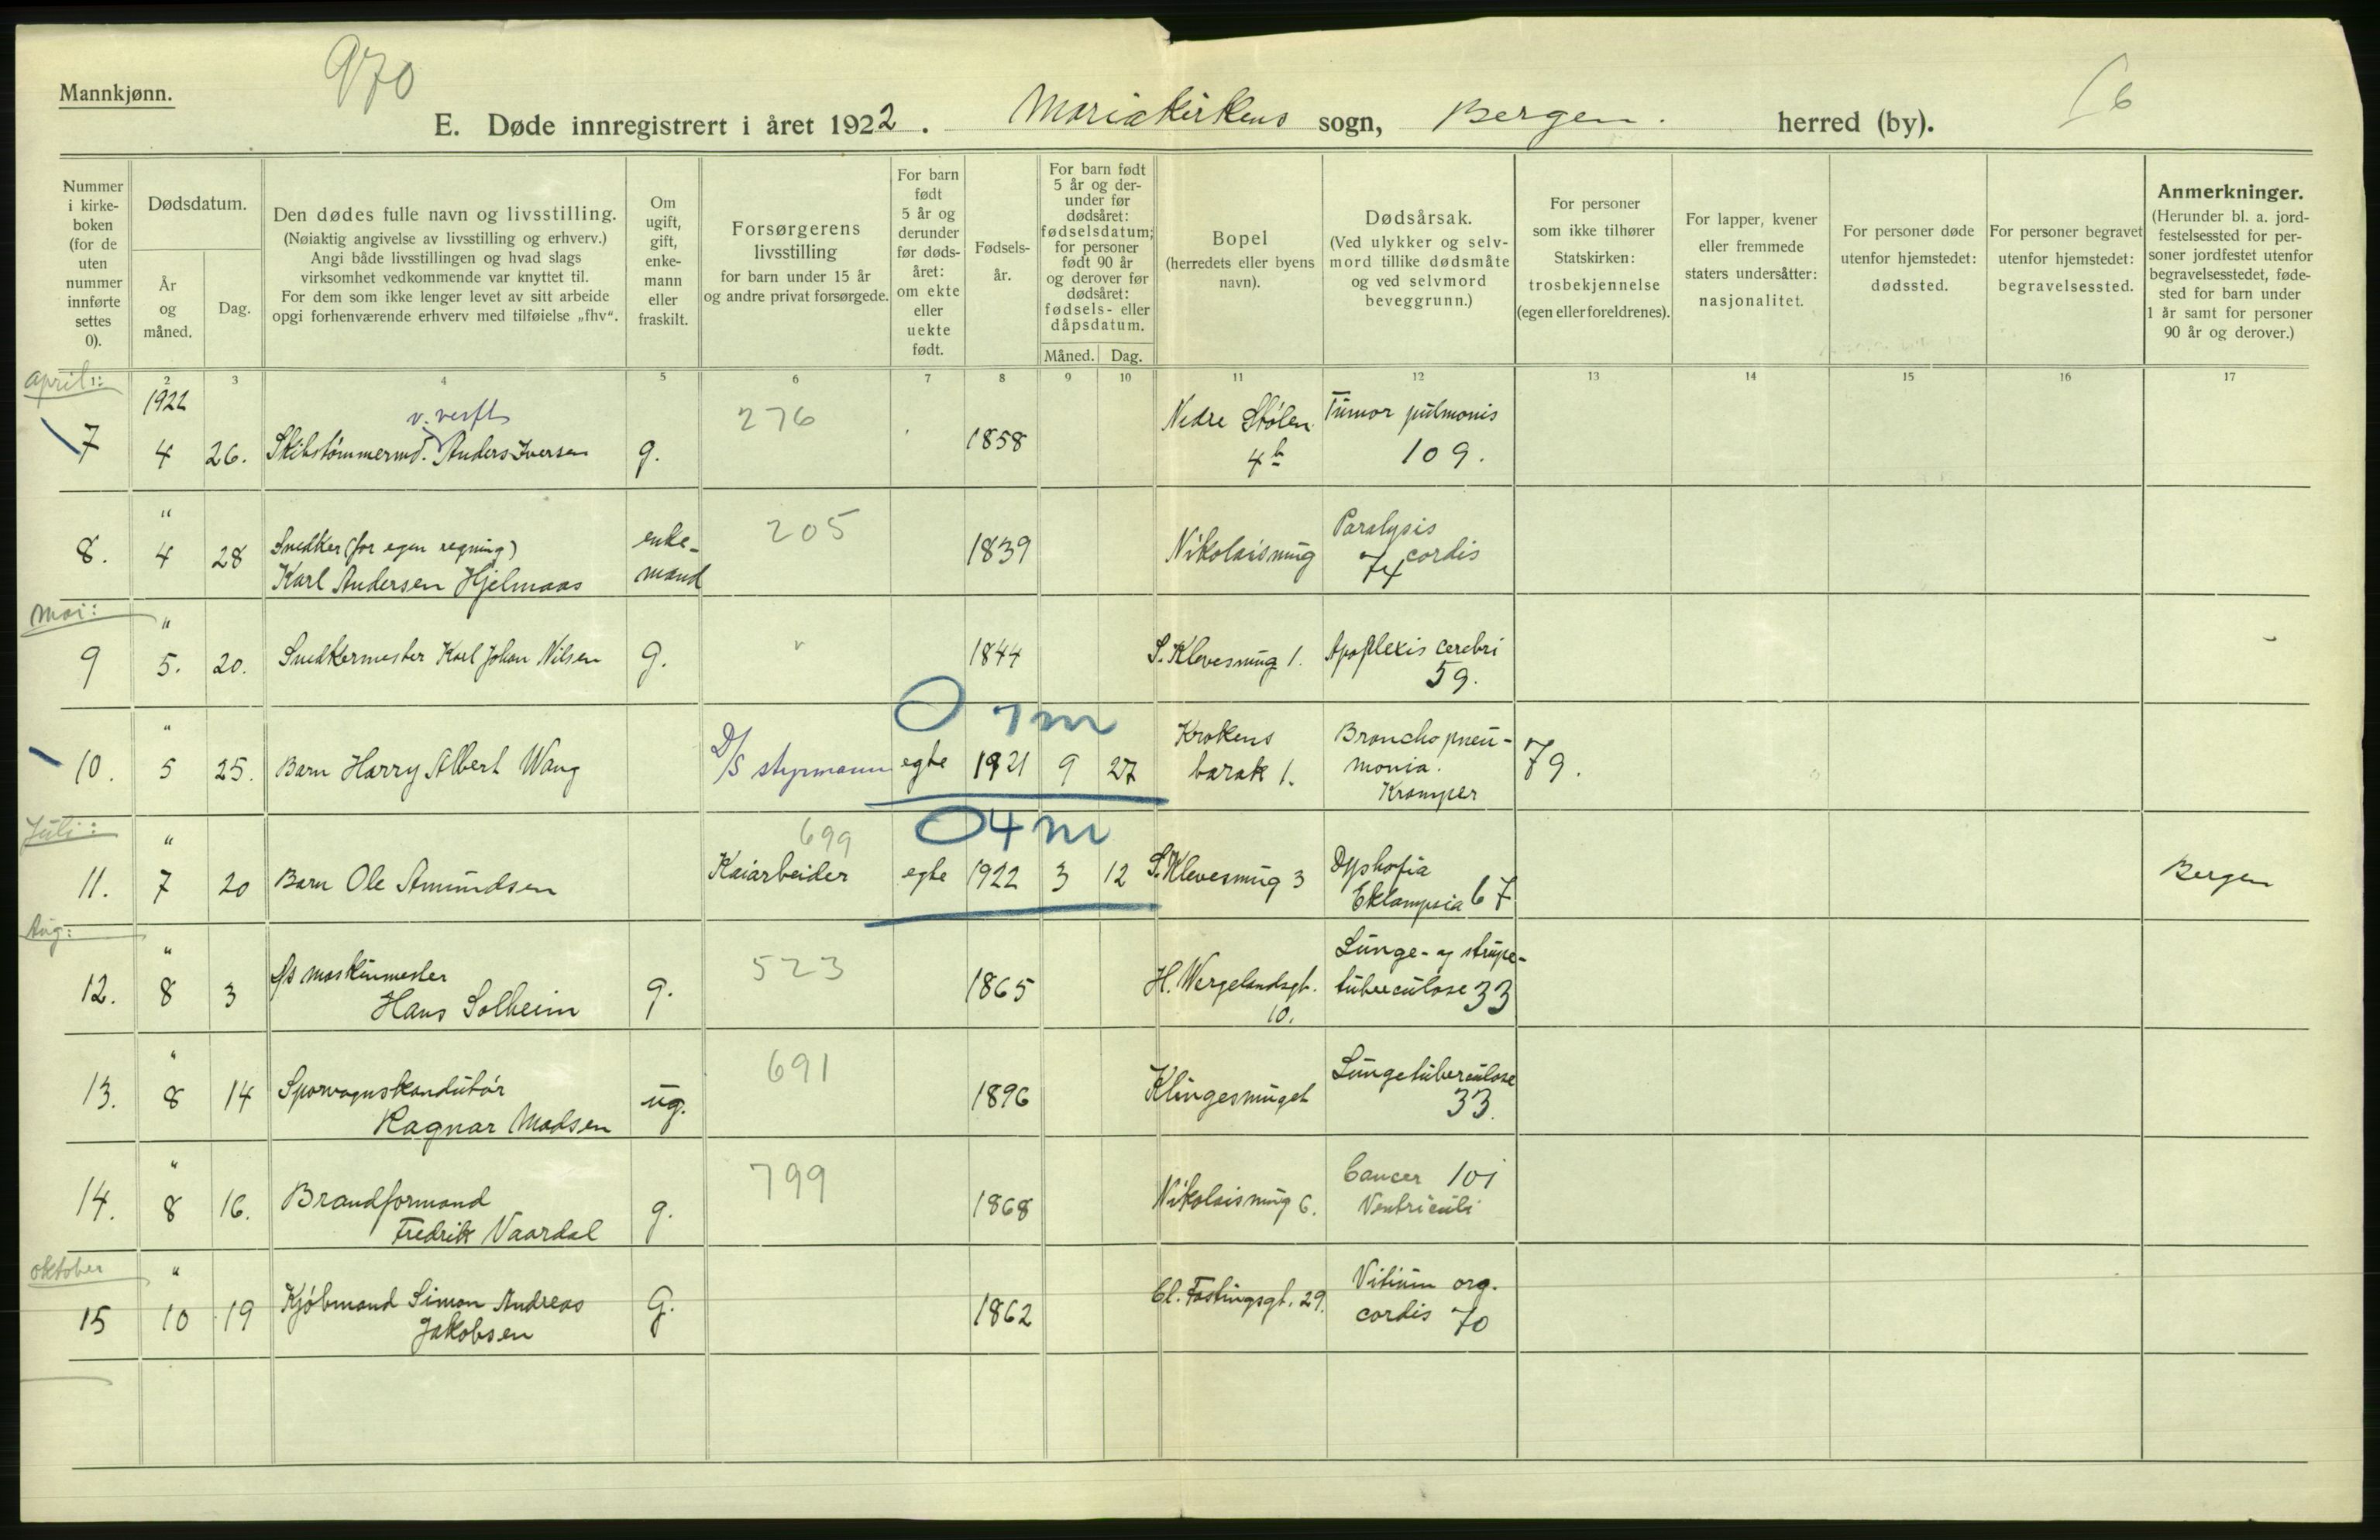 Mannkjønn.
970
E. Døde innregistrert i året 1922. Mariakirkens sogn, Bergen. herred (by).
6
Nummer i kirke-boken (for de uten nummer innførte settes 0).
Dødsdatum.
År og måned.
Dag.
Den dødes fulle navn og livsstilling.
(Nøiaktig angivelse av livsstilling og erhverv.)
Angi både livsstillingen og hvad slags
virksomhet vedkommende var knyttet til.
For dem som ikke lenger levet av sitt arbeide
opgi forhenværende erhverv med tilføielse „fhv“.
Om ugift, gift, enke-mann eller fraskilt.
Forsørgerens livsstilling
for barn under 15 år
og andre privat forsørgede.
For barn født 5 år og derunder før døds-året: om ekte eller uekte født.
Fødsels-år.
For barn født 5 år og der-under før dødsåret: fødselsdatum; for personer født 90 år og derover før dødsåret: fødsels- eller dåpsdatum.
Måned. Dag.
Bopel
(herredets eller byens navn).
Dødsårsak.
(Ved ulykker og selv-mord tillike dødsmåte og ved selvmord beveggrunn.)
For personer som ikke tilhører Statskirken: trosbekjennelse (egen eller foreldrenes).
For lapper, kvener eller fremmede staters undersåtter: nasjonalitet.
For personer døde utenfor hjemstedet: dødssted.
For personer begravet utenfor hjemstedet: begravelsessted.
Anmerkninger.
(Herunder bl. a. jord-festelsessted for per-soner jordfestet utenfor begravelsesstedet, føde-sted for barn under 1 år samt for personer 90 år og derover.)
1 2 3 4 5 6 7 8 9 10 11 12 13 14 15 16 17
april:
1922
v. verft
7 4 26. Skibstømmermd. Anders Iversen g. 276 1858 Nedre Stølen 4b Tumor pulmonis 109.
8. " 4 28 Snedker (for egen regning) Karl Andersen Hjelmaas enke-mand 205 1839 Nikolaismug Paralysis cordis 74
Mai:
9 " 5. 20. Snedkermester Karl Johan Nilsen g. 1844 S. Klevesmug 1. Apoplexis cerebri 59.
0 7 m
10. " 5 25. Barn Harry Albert Wang D/S styrmann egte 1921 9 27 Krokens barak 1. Bronchopneu-monia. Kramper 79.
Juli:
0 4 m
11. " 7 20 Barn Ole Amundsen 699 Kaiarbeider egte 1922 3 12 S. Klevesmug 3 Dystrofia Eklampsia 67 Bergen
Aug:
12. " 8 3 maskinmester Hans Solheim g. 523 1865 H. Wergelandsgt. 10. Lunge- og strupe-tuberculose 33
13. " 8 14 Sporvognskonduktør Ragnar Madsen ug. 691 1896 Klingesmuget Lungetuberculose 33.
14. " 8 16. Brandformand Fredrik Vaardal g. 799 1868 Nikolaismug 6. Cancer 101 Ventriculi
oktober
15 " 10 19 Kjøbmand Simon Andreas Jakobsen G. 1862 Cl. Fastingsgt. 29. Vitium org. cordis 70